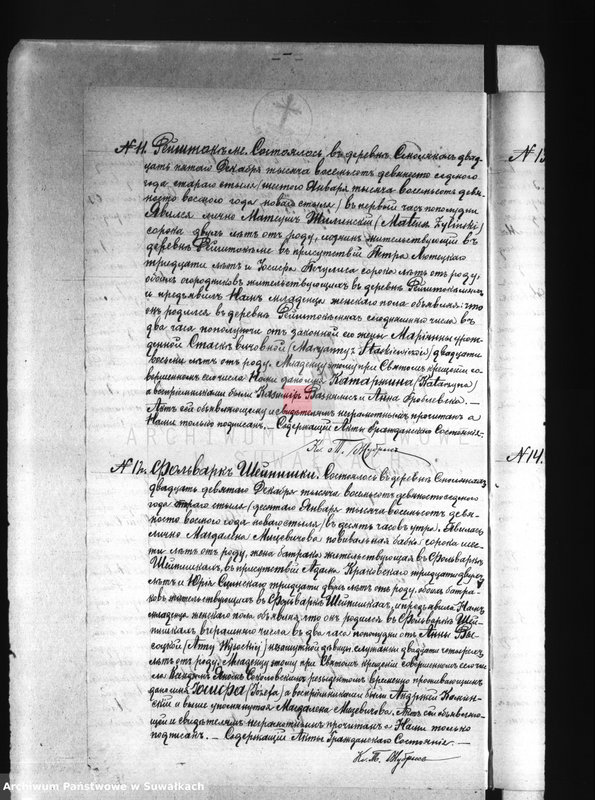 № 11. Рейштокъме. Состоялось въ деревнѣ Смолянахъ двад-
цать пятаго Декабря тысяча восемьсотъ девяносто седьмого
года стараго стиля (шестого Января тысяча восемьсотъ девя-
носто восьмого года новаго стиля) въ первый часъ пополудни
Явился лично Матеушъ Жилинскій (Mateusz Żyliński)
сорока двухъ лѣтъ отъ роду, жительствующій въ
деревнѣ Рейштокъме въ присутствіи Петра
тридцати лѣтъ и Іосифа сорока лѣтъ отъ роду,
обоихъ огородниковъ жительствующихъ въ деревнѣ
и предъявилъ Намъ младенца женскаго пола объявляя: что
онъ родился въ деревнѣ числа въ
два часа пополуночи отъ законной его жены Маріанны урож-
денной (Maryanny z) двадцати
лѣтъ отъ роду. Младенцу этому при Святомъ крещеніи со-
вершенномъ сего числа Нами дано имя Катаржина (Katarzyna)
а воспріемниками были Казиміръ и Анна
Актъ сей объявляющему и свидѣтелямъ неграмотнымъ прочитанъ а
Нами только подписанъ. — Содержащій Акты Гражданскаго Состоянія.
Кс. Т. Жубрисъ
№ 12. Фольваркъ Шейпишки. Состоялось въ деревнѣ Смолянахъ
двадцать девятаго Декабря тысяча восемьсотъ девяносто седьмого
года стараго стиля (десятаго Января тысяча восемьсотъ девя-
носто восьмого года новаго стиля) въ десять часовъ утра. Явилась
лично Магдалена Мицевичова повивальная бабка сорока шес-
ти лѣтъ отъ роду, жена батрака жительствующая въ Фольваркѣ
Шейпишкахъ, въ присутствіи Адама Краковскаго тридцати двухъ
лѣтъ и Юрія тридцати двухъ лѣтъ отъ роду, обоихъ батра-
ковъ жительствующихъ въ Фольваркѣ Шейпишкахъ, и предъявила Намъ
младенца женскаго пола объявляя: что онъ родился въ Фольваркѣ Шей-
пишкахъ вчерашняго числа въ два часа пополудни отъ Анны Вы-
соцкой (Anny Wysockiej) незамужней дѣвицы служанки двадцати четырехъ
лѣтъ отъ роду. Младенцу этому при Святомъ крещеніи совершенномъ сего чис-
ла Ксендзомъ Соколовскимъ
дано имя Іозефа (Józefa) а воспріемниками были Андрей Камин-
скій и выше упомянутая Магдалена Мицевичова. Актъ сей объявляю-
щей и свидѣтелямъ неграмотнымъ прочитанъ а Нами только
подписанъ. — Содержащій Акты Гражданскаго Состоянія. —
Кс. Т. Жубрисъ
№ 13
№ 14.
ARCHIWUM PAŃSTWOWE
W SUWAŁKACH
Archiwum Państwowe w Suwałkach